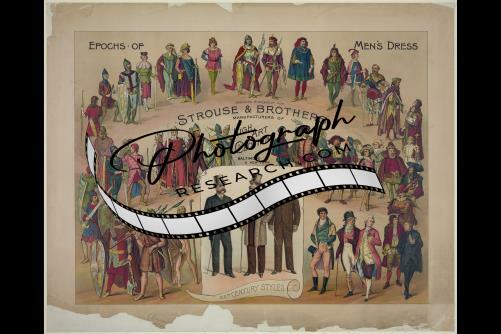 EPOCHS·OF
MEN'S DRESS
STROUSE & BROTHERS
MANUFACTURERS OF
HIGH
ART
BALTIMORE
Photograph
RESEARCH.COM
CENTURY STYLES